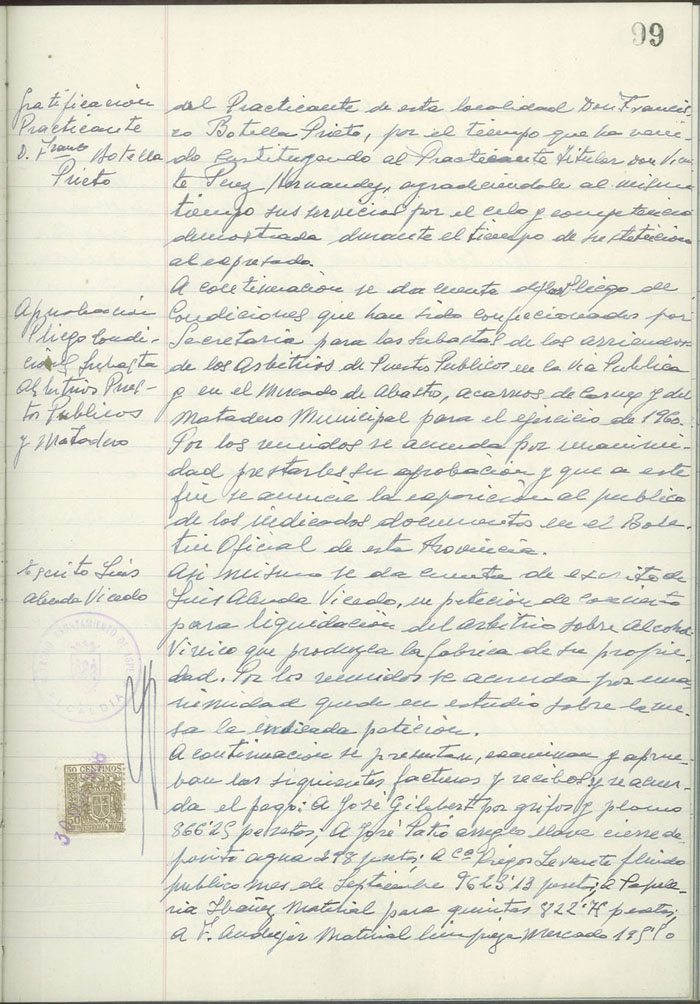 99
Gratificación
Practicante
D. Franco Botella
Prieto
del Practicante de esta localidad Don Francis-
co Botella Prieto, por el tiempo que ha veni-
do sustituyendo al Practicante Titular Don Vicen-
te Perez Hernandez, agradeciendole al mismo
tiempo sus servicios por el celo y competencia
demostrada durante el tiempo de sustitucion
al expresado.
Aprobación
Pliego Condi-
ciones Subasta
Arbitrios Pues-
tos Publicos
y Matadero
A continuación se da cuenta del Pliego de
Condiciones que han sido confeccionados por
Secretaria para las subastas de los arriendos
de los Arbitrios de Puestos Publicos en la Via Publica
y en el Mercado de Abasto, acarreos de Carnes y del
Matadero Municipal para el ejercicio de 1960.
Por los reunidos se acuerda por unanimi-
dad prestarles su aprobación y que a este
fin se anuncie la exposición al publico
de los indicados documentos en el Bole-
tin Oficial de esta Provincia.
Escrito Luis
Abenda Vicedo
Asi mismo se da cuenta de escrito de
Luis Abenda Vicedo, en petición de concierto
para liquidacion del arbitrio sobre Alcohol
Vinico que produzca la fabrica de su propie-
dad. Por los reunidos se acuerda por una-
nimidad quede en estudio sobre la me-
sa la indicada petición.
A continuacion se presentan, examinan y aprue-
ban las siguientes facturas y recibos y se acuer-
da el pago: A José Gilabert por grifos y plomo
866'25 pesetas; A José Patió arreglo llave cierre de-
posito agua 298 pesetas; a Cª Riegos Levante fluido
publico mes de Septiembre 9623'13 pesetas; a Papele-
ria Ibáñez Material para quintas 822' pesetas;
A F. Andujar Material limpieza Mercado
AYUNTAMIENTO DE ASPE
ALCALDIA
50 CENTIMOS
50